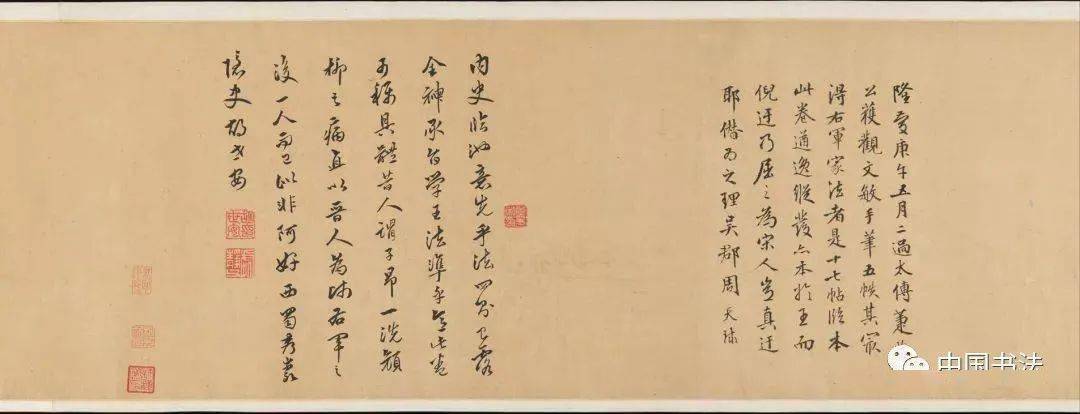 隆慶庚午五月二過太傅
公獲觀文敏手筆五帙其最
得右軍家法者是十七帖臨本
此卷遒逸縱發亦本於王而
倪迂乃屈之為宋人豈真迂
耶僭為之理吳郡周天球
內史臨池意先乎法四分已露
全神承旨學王法準乎意此卷
可稱具體昔人謂子昂一洗顏
柳之直以晉人為師右軍之
後一人而已此非阿好西蜀
史胡世安
中国书法